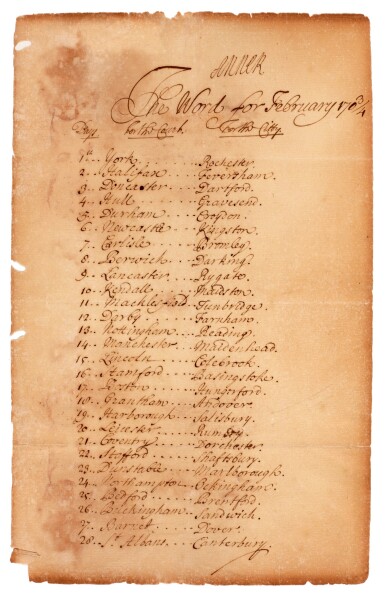 The Word for February 170¾
Day for the Court For the Citty
1st York Rochester.
2 Halifax Feversham.
3 Doncaster Dartford.
4 Hull Gravesend.
5 Durham Croydon.
6 Newcastle Kingston.
7 Carlisle Bromley.
8 Berwick Darking.
9 Lancaster Rygate.
10 Kendall Maidston.
11 Mackelsfield Tunbridge.
12 Darby Farnham.
13 Nottingham Reading.
14 Manchester Maidenhead.
15 Lincoln Colebrook.
16 Stamford Basingstoke.
17 Boston Hunborford.
18 Grantham Andover.
19 Harborough Salisbury.
20 Leicester Rumsey.
21 Coventry Dorchester.
22 Stafford Shaftsbury.
23 Dunstable Marlborough.
24 Northampton Oekingham.
25 Bedford Brentford.
26 Buckingham Sandwich.
27 Barnet Dover.
28 St Albans Canterbury.